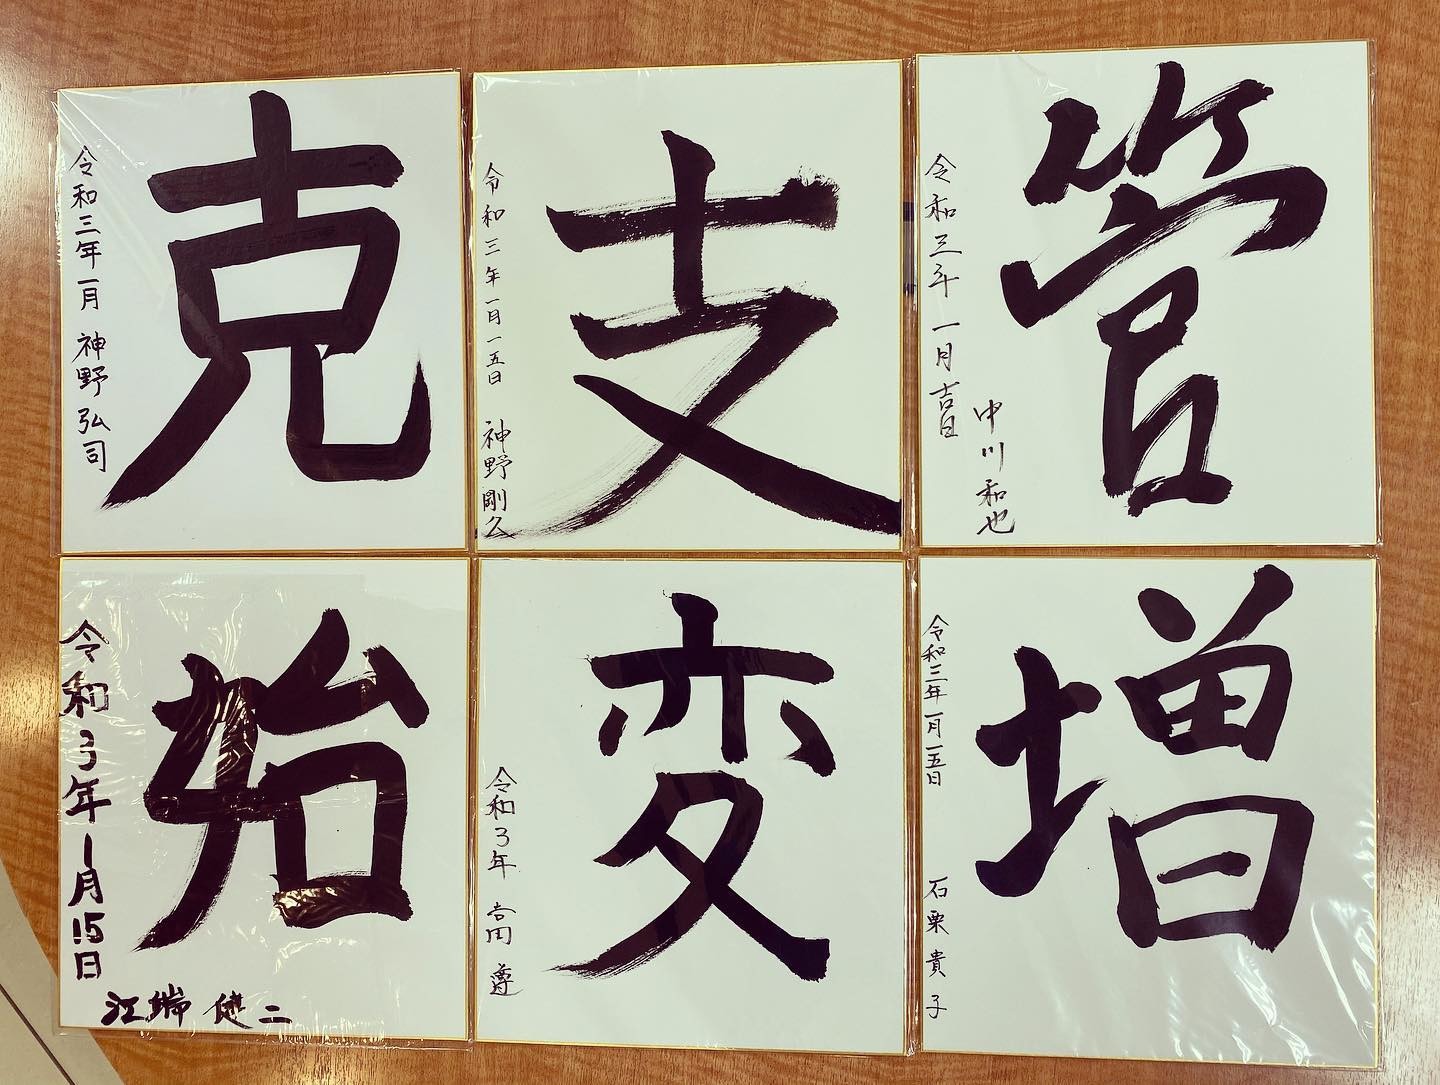 克
令和三年一月 神野弘司
支
令和三年一月一五日 神野剛久
管
令和三年一月吉日
中川和也
始
令和3年1月15日
江端健二
変
令和3年
増
令和三年一月一五日 石栗貴子